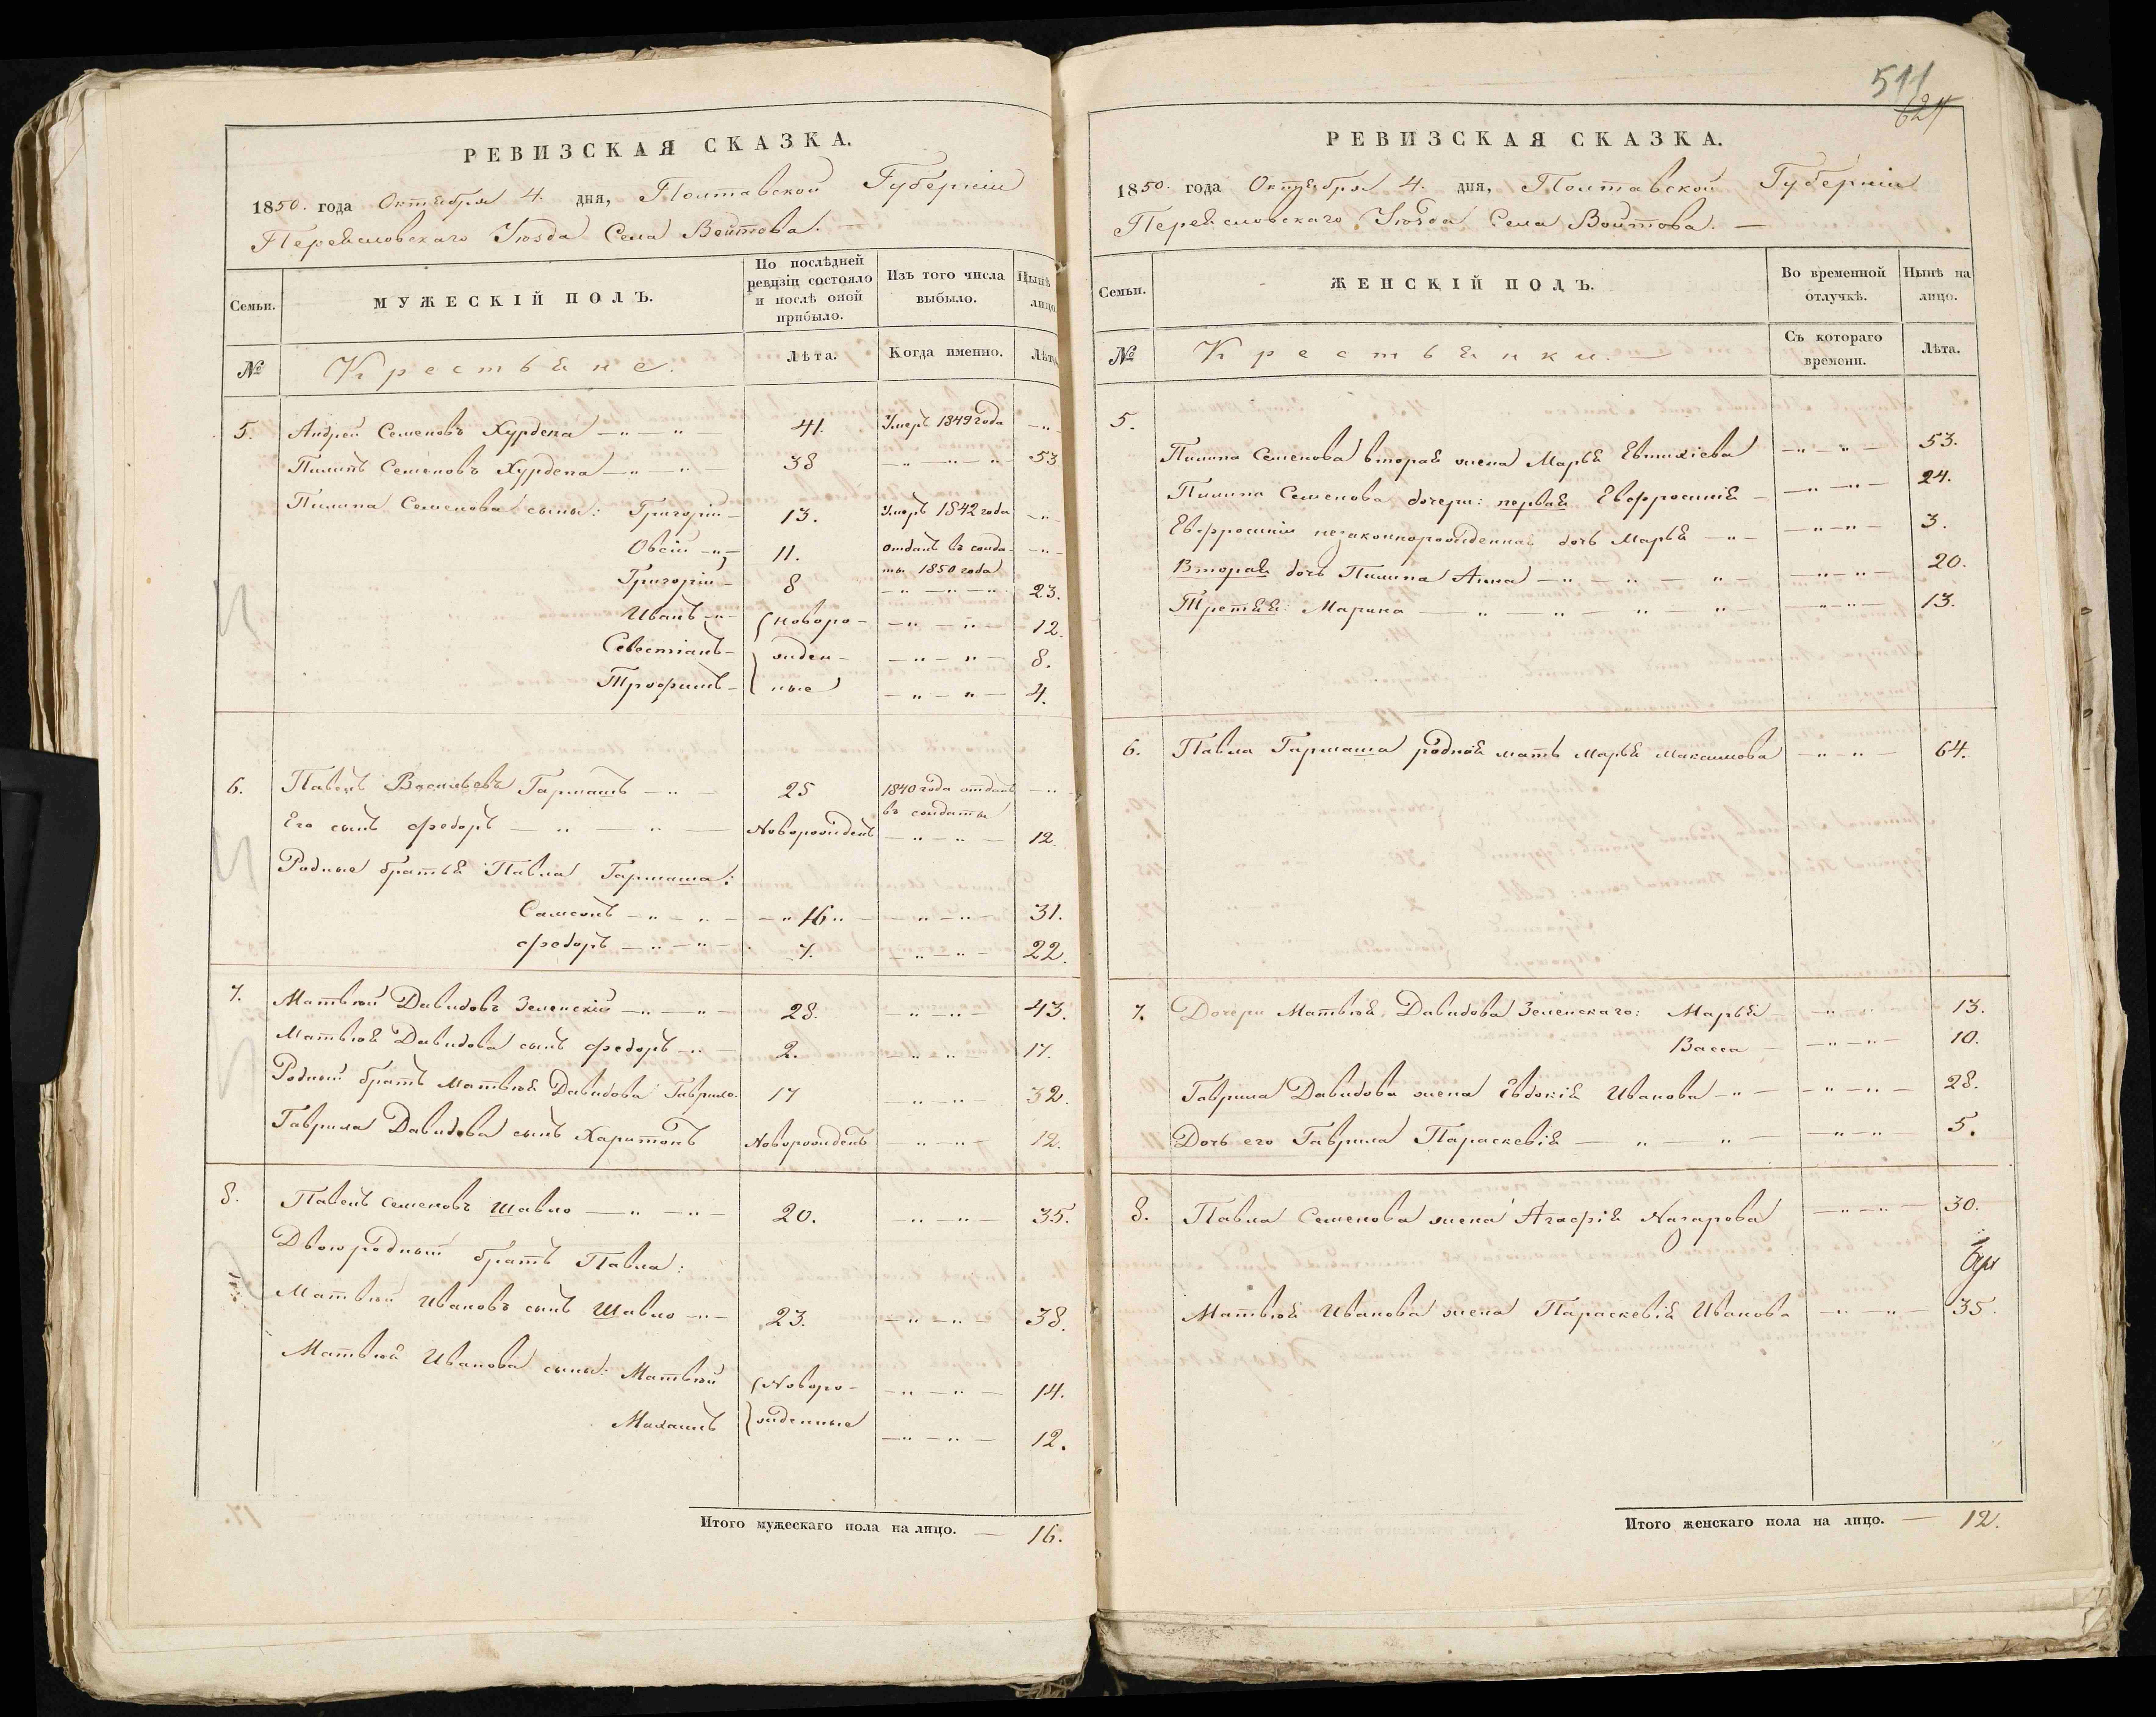 РЕВИЗСКАЯ СКАЗКА.
1850. года Октября 4. дня, Полтавской Губерніи
Переясловскаго Уѣзда Села Войтова. —
Семьи.
МУЖЕСКІЙ ПОЛЪ.
По послѣдней ревизіи состояло и послѣ оной прибыло.
Изъ того числа выбыло.
Нынѣ лицо.
№
Крестьяне.
Лѣта.
Когда именно.
Лѣта
5. Андрей Семеновъ Хурдепа — 41. Умеръ 1849 года —
Пилипъ Семеновъ Хурдепа — 38 — 53
Пилипа Семенова сыны: Григорій — 13. Умеръ 1842 года —
Овсій — 11. отданъ въ солда-
ты 1850 года
Григорій — 8 — 23.
Иванъ — (новоро- — 12.
Севостіянъ — жден- — 8.
Трофимъ — ные — 4.
6. Павелъ Васильевъ Гармашъ — 25 1840 года отданъ
въ солдаты
Его сынъ Федоръ — Новорожденъ — 12.
Родные братья Павла Гармаша:
Самсонъ — 16 — 31.
Федоръ — 7. — 22.
7. Матвѣй Давидовъ Зеленскій — 28. — 43.
Матвѣя Давидова сынъ Федоръ — 2. — 17.
Родный братъ Матвѣя Давидова Гаврило. 17 — 32.
Гаврила Давидова сынъ Харитонъ Новорожденъ — 12.
8. Павелъ Семеновъ Шавло — 20. — 35.
Двоюродный братъ Павла:
Матвѣй Ивановъ сынъ Шавло — 23. — 38.
Матвѣя Иванова сыны: Матвѣй (Новоро- — 14.
жденные
Малашъ — 12.
Итого мужескаго пола на лицо. — 16.
511
624
РЕВИЗСКАЯ СКАЗКА.
1850. года Октября 4. дня, Полтавской Губерніи
Переясловскаго Уѣзда Села Войтова. —
Семьи.
ЖЕНСКІЙ ПОЛЪ.
Во временной отлучкѣ.
Нынѣ на лицо.
№
Крестьянки. —
Съ котораго времени.
Лѣта.
5.
Пилипа Семенова вторая жена Марья Евтихіева — 53.
Пилипа Семенова дочери: первая Евфросинія — 24.
Евфросиніи незаконнорожденная дочь Марья — 3.
Вторая дочь Пилипа Анна — 20.
Третья: Марина — 13.
6. Павла Гармаша родная мать Марья Максимова — 64.
7. Дочери Матвѣя Давидова Зеленскаго: Марья — 13.
Васса — 10.
Гаврила Давидова жена Евдокія Иванова — 28.
Дочь его Гаврила Параскевія — 5.
8. Павла Семенова жена Агафія Назарова — 30.
Матвѣя Иванова жена Параскевія Иванова — 35.
Итого женскаго пола на лицо. — 12.